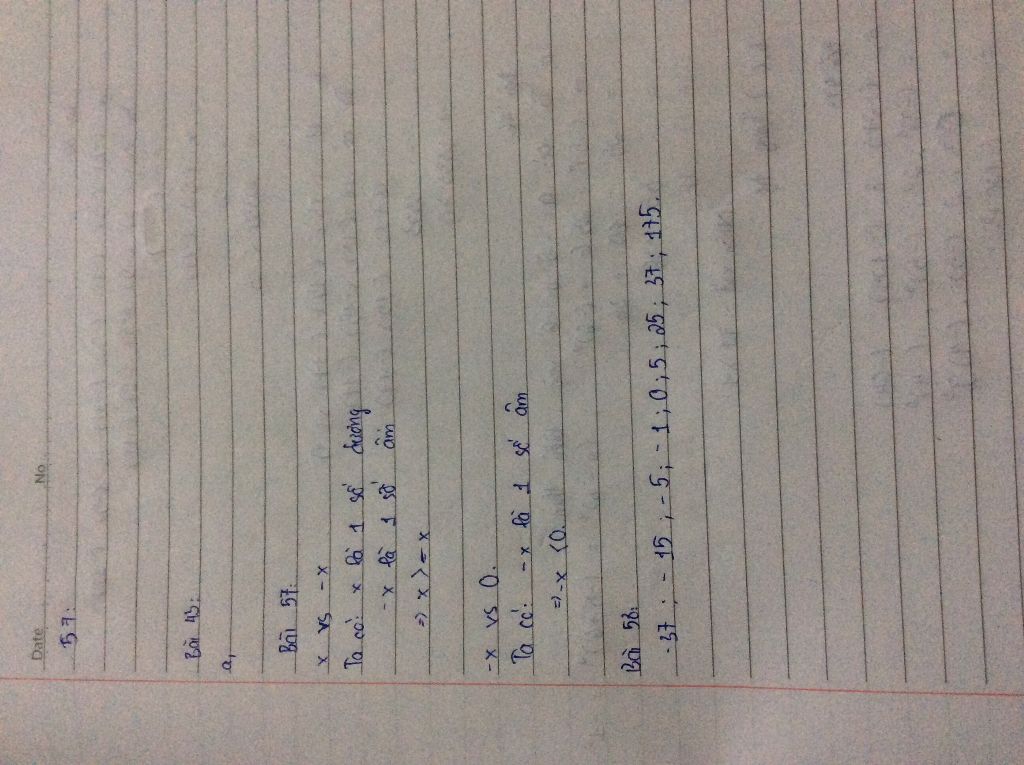 Date No
57:
Bài 43:
a,
Bài 57:
x vs -x
Ta có: x là 1 số dương
-x là 1 số âm
=> x > -x
-x vs 0.
Ta có: -x là 1 số âm
=> -x < 0.
Bài 58:
-37 ; -15 ; -5 ; -1 ; 0 ; 5 ; 25 ; 37 ; 175.